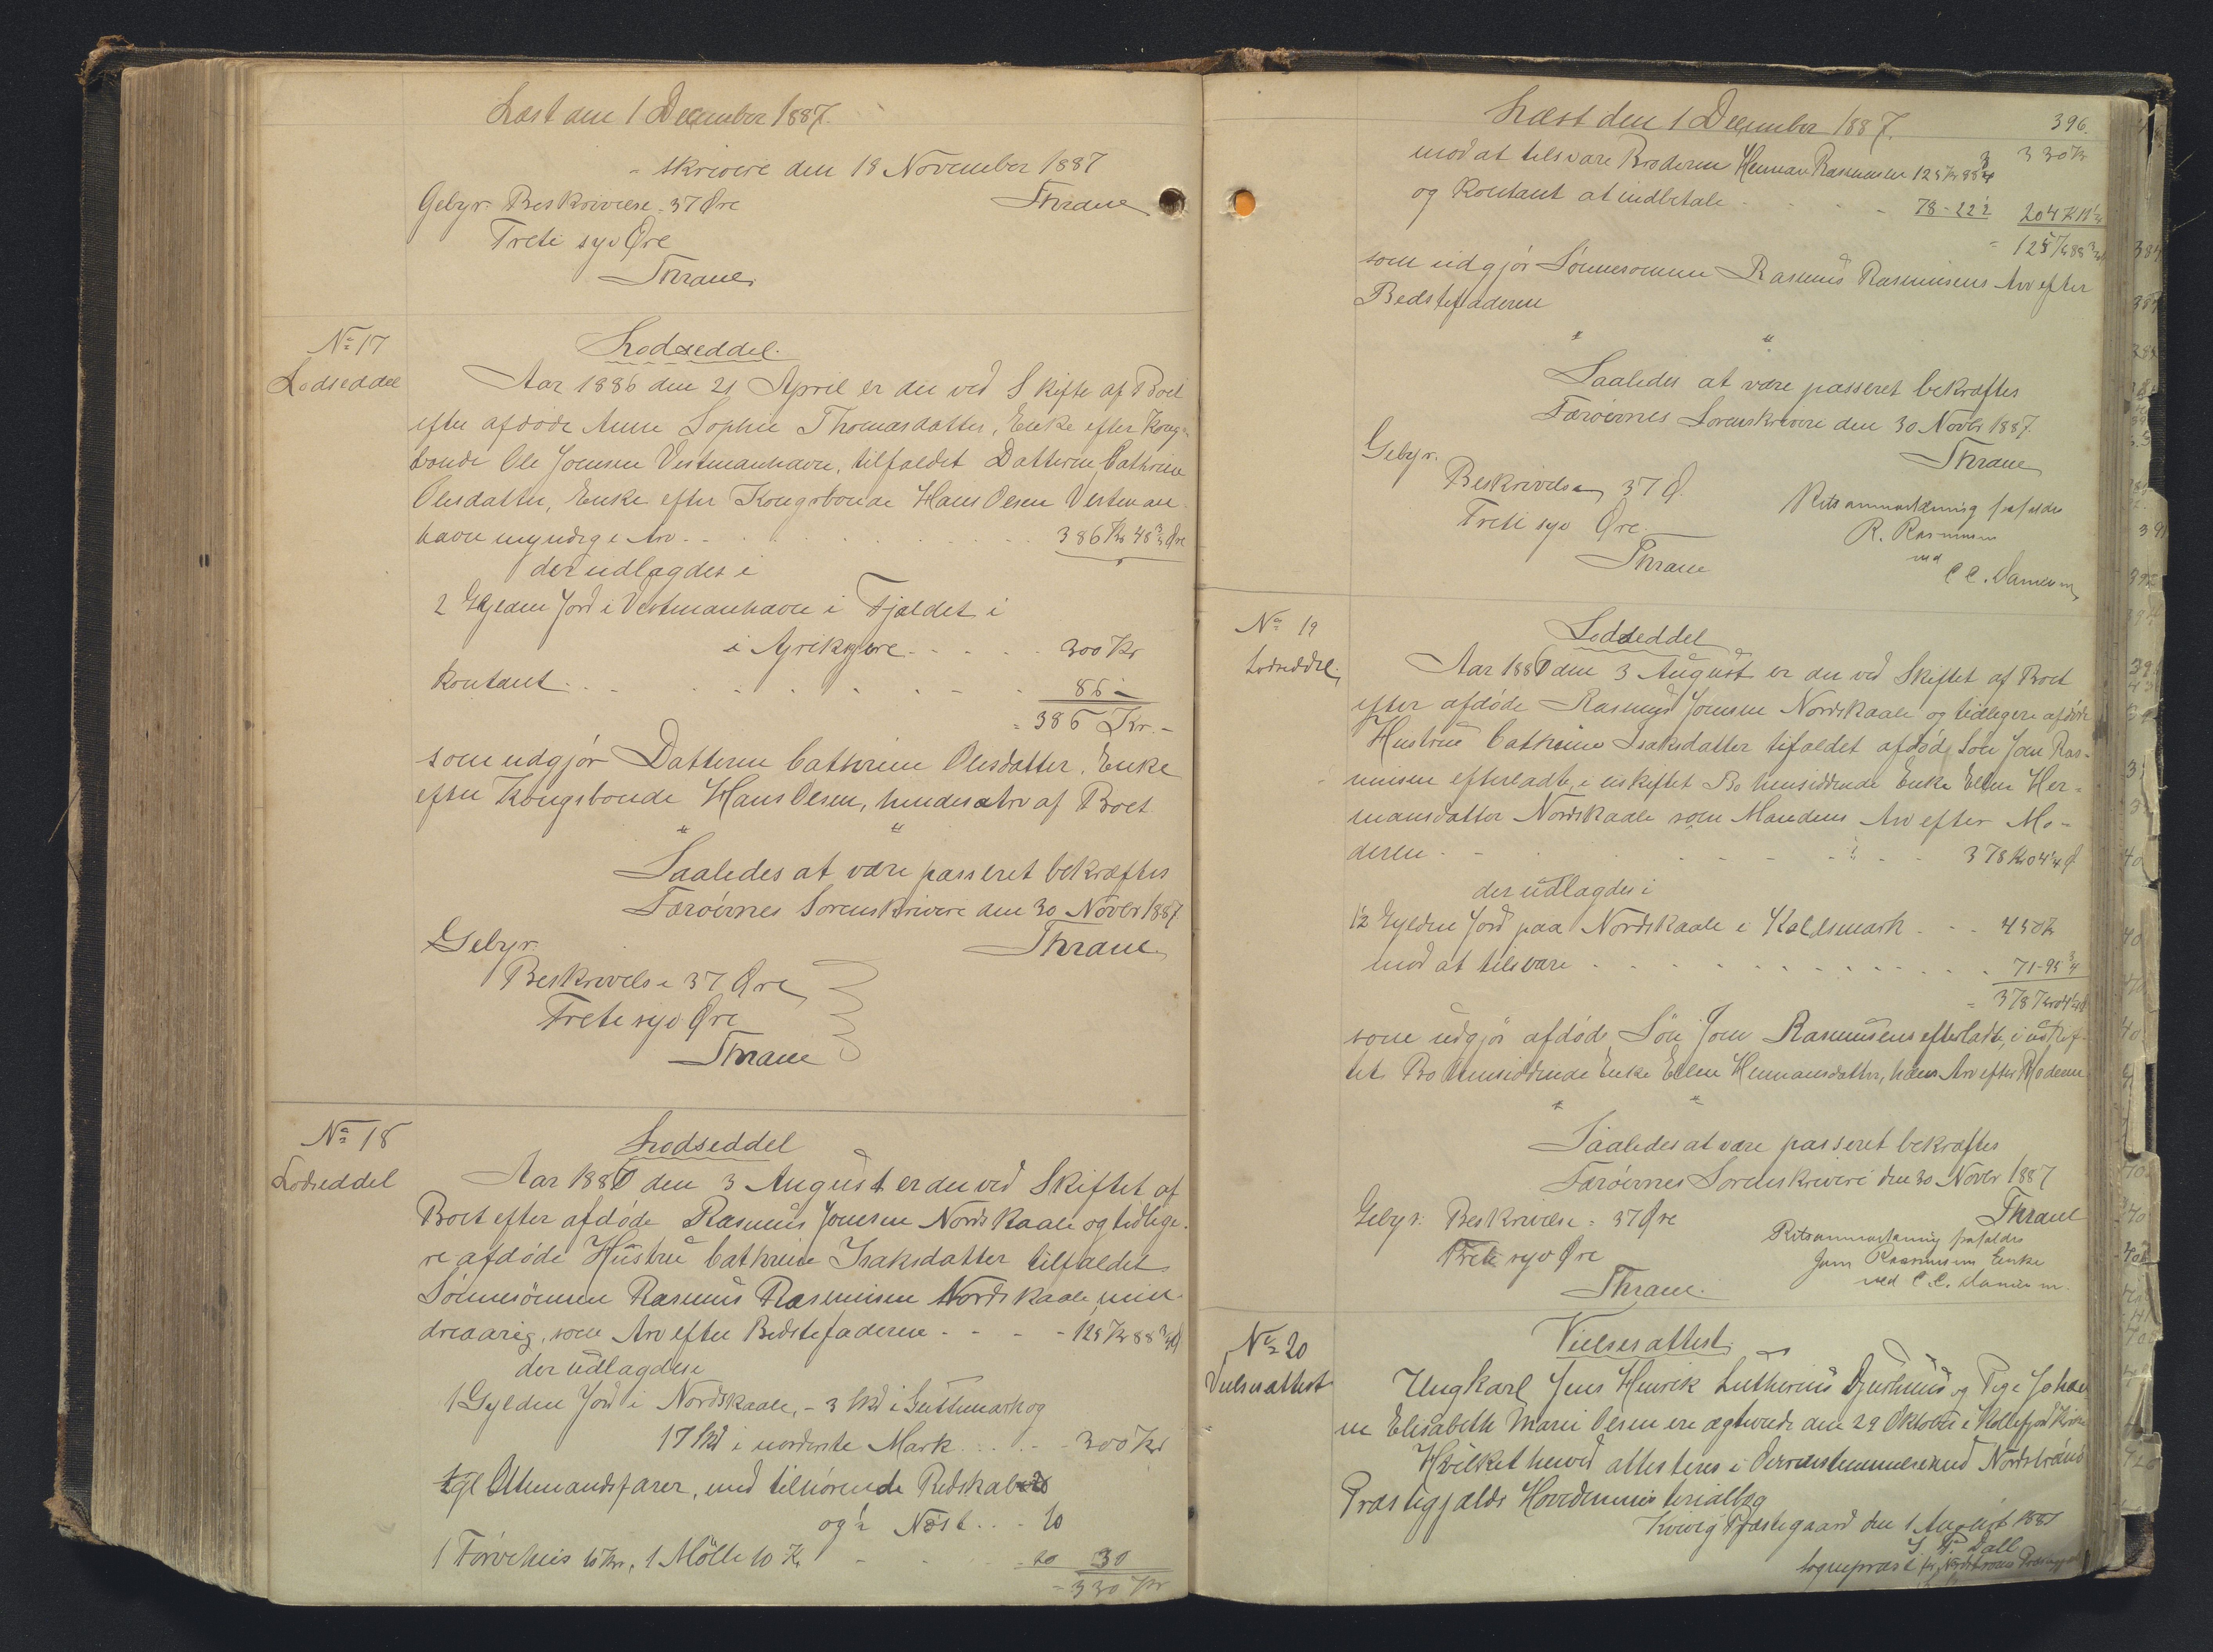 Læst den 1 December 1887.
- skriveri den 18 November 1887
Gebyr: Beskrivelse. 37 Øre
Thrane
Treti syv Øre
Thrane
No 17
Lodseddel
Lodseddel.
Aar 1886 den 21 April er der ved Skifte af Boet
efter afdøde Anne Sophie Thomasdatter, Enke efter Kongs-
bonde Ole Joensen Vestmanhavn, tilfaldet Datteren Cathrine
Olesdatter, Enke efter Kongsbonde Hans Olesen Vestman-
havn myndig e Arv - - - 386 Kr 48 3/4 Øre
der udlagdes i
2 Gylden Jord i Vestmanhavn i Fjældet i
i - - - 300 Kr
Kontant - - - 86 -
= 386 Kr. -
som udgjør Datteren Cathrine Olesdatter, Enke
efter Kongsbonde Hans Olesen, hendes Arv af Boet
" "
Saaledes at være passeret bekræftes
Færøernes Sorenskriveri den 30 Novbr 1887.
Thrane
Gebyr.
Beskrivelse 37 Øre
Treti syv Øre
Thrane
No 18
Lodseddel
Lodseddel
Aar 1886 den 3 August er der ved Skiftet af
Boet efter afdøde Rasmus Joensen Nordskaale og tidlige-
re afdøde Hustru Cathrine Isaksdatter tilfaldet
Sønnesønnen Rasmus Rasmusen Nordskaale, min-
dreaarig, som Arv efter Bedstefaderen - - - 125 Kr 88 3/4 Ø
der udlagdes i
1 Gylden Jord i Nordskaale, - 3 Skd i og
17 Skd i norderste Mark - - - 300 Kr
Ottemandsfarer, med tilhørende Redskaber
og 1/2 Nøst - - - 10
1 10 Kr, 1 Mølle 10 Kr - - - 20 30
= 330 Kr
Læst den 1 December 1887.
396.
mod at tilsvare Broderen Herman Rasmusen 125 Kr 88 3/4 330 Kr
og Kontant at indbetale - - - 78 - 22 1/2 204 Kr 11 1/4
= 125 Kr 88 3/4
som udgjør Sønnesønnen Rasmus Rasmusens Arv efter
Bedstefaderen
" "
Saaledes at være passeret bekræftes
Færøernes Sorenskriveri den 30 Novbr 1887.
Thrane
Gebyr.
Beskrivelse 37 Ø.
Treti syv Øre
Thrane
Retsanmærkning frafaldes
R. Rasmusen
ved
C. C. Danielsen
No 19
Lodseddel.
Lodseddel
Aar 1886 den 3 August er der ved Skiftet af Boet
efter afdøde Rasmus Joensen Nordskaale og tidligere afdøde
Hustru Cathrine Isaksdatter tifaldet afdøde Søn Joen Ras-
musen efterladte, i uskiftet Bo hensiddende Enke Ellen Her-
mansdatter Nordskaale som Mandens Arv efter Mo-
deren - - - 378 Kr 04 1/4 Ø
der udlagdes i
1 1/2 Gylden Jord paa Nordskaale i Kaldsmark - - - 450 Kr
mod at tilsvare - - - 71 - 95 3/4
= 378 Kr 04 1/4 Ø
som udgjør afdøde Søn Joen Rasmusens efterladte, i uskif-
tet Bo hensiddende Enke Ellen Hermansdatter, hans Arv efter Moderen
" "
Saaledes at være passeret bekræftes
Færøernes Sorenskriveri den 30 Novbr 1887
Thrane
Gebyr. Beskrivelse = 37 Øre
Treti syv Øre
Thrane.
Retsanmærkning frafaldes
Joen Rasmusens Enke
ved C. C. Danielsen.
No 20
Vielsesattest
Vielsesattest.
Ungkarl Jens Henrik Lutherius Djurhuus og Pige Johan-
ne Elisabeth Marie Olsen ere ægteviede den 29 Oktober i Kollefjord Kirke
Hvilket herved attesteres i Overensstemmelse med Nordstrømø
Præstegjælds Hovedministerialbog
Kvivig Præstegaard den 1 August 1887
Dall
Sognepræst for Nordstrømø Præstegjæld